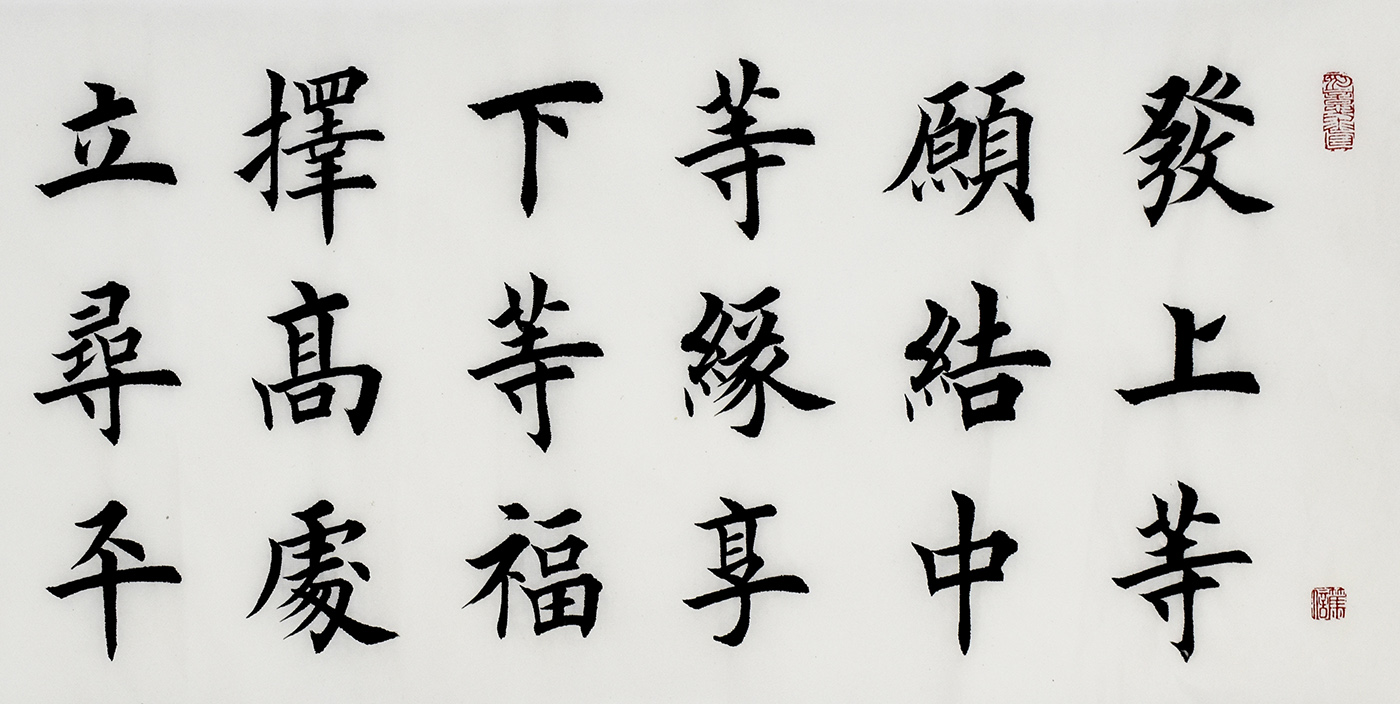 發上等
願結中
等緣享
下等福
擇高處
立尋平